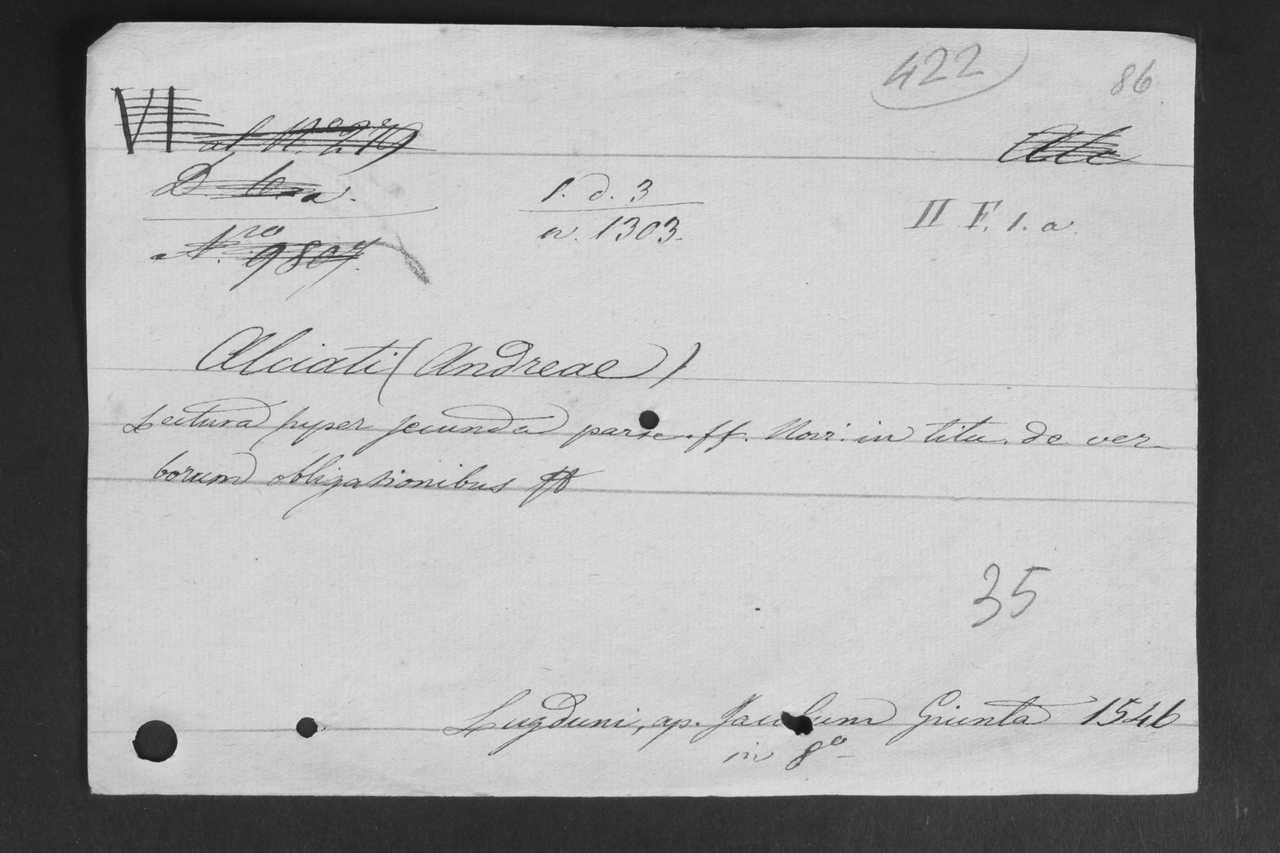 422
86
VI al Nro 279
Alc
D.
1. d. 3
n. 1303.
II F. 1. a.
Nro 9807.
Alciati (Andreae)
Lectura super secunda parte ff. Novi in titu. de ver-
borum obligationibus
35
Lugduni, ap. Jacobum Giunta 1546
in 8o